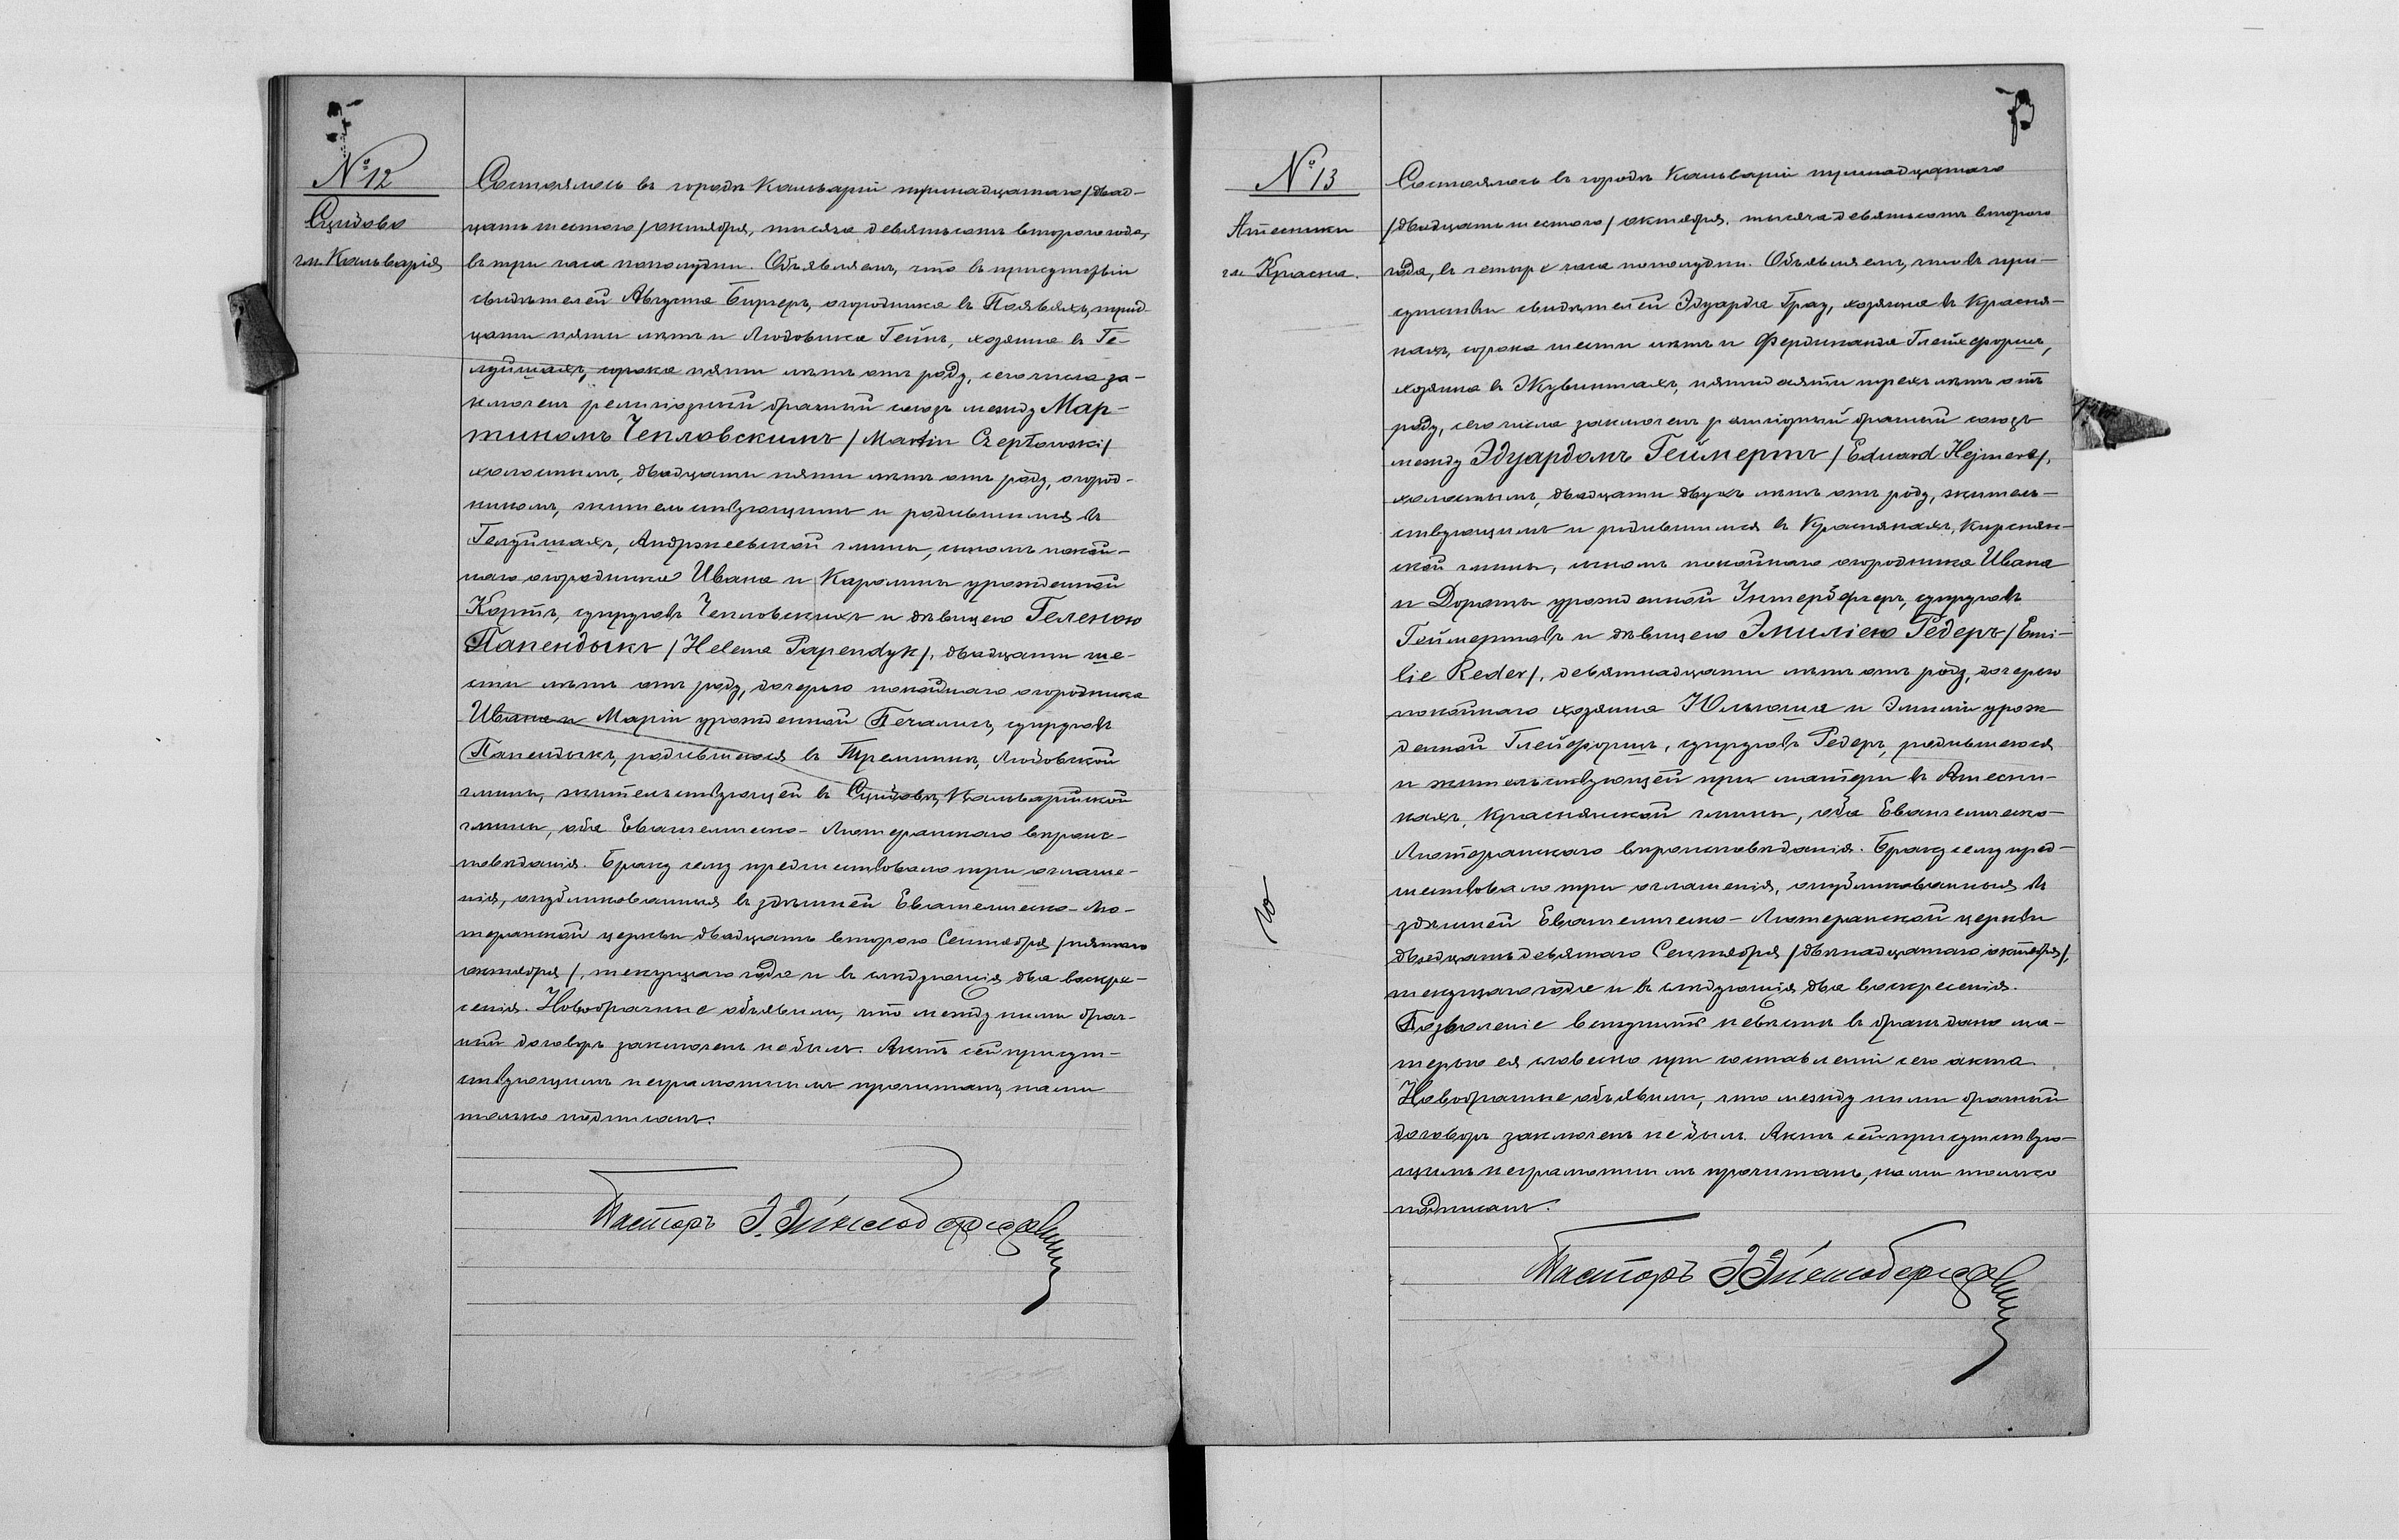 № 12
Сцидово
гм. Кальварія
Состоялось въ городѣ Кальваріи тринадцатаго /двад-
цать шестого/ октября, тысяча девятьсотъ второго года,
въ три часа пополудни. Объявляемъ, что въ присутствіи
свидѣтелей Августа Биргеръ, огородника въ Появяхъ, трид-
цати пяти лѣтъ и Людовика Гейнъ, хозяина въ Ге-
луйшахъ, сорока пяти лѣтъ отъ роду, сего числа за-
ключенъ религіозный брачный союзъ между Мар-
тиномъ Чепловскимъ /Martin Czepłowski/
холостымъ, двадцати пяти лѣтъ отъ роду, огород-
никомъ, жительствующимъ и родившимся въ
Гелуйшахъ, Андржеевской гмины, сыномъ покой-
наго огородника Ивана и Каролины урожденной
Кортъ, супруговъ Чепловскихъ и дѣвицею Геленою
Папендыкъ /Helena Papendyk/, двадцати ше-
сти лѣтъ отъ роду, дочерью покойнаго огородника
Ивана и Маріи урожденной Печалисъ, супруговъ
Папендыкъ, родившеюся въ Тремпинѣ, Людовской
гмины, жительствующей въ Сцидовѣ, Кальварійской
гмины, оба Евангелическо-Лютеранскаго вѣроис-
повѣданія. Браку сему предшествовало три оглаше-
нія, опубликованныя въ здѣшней Евангелическо-Лю-
теранской церкви двадцать второго Сентября /пятаго
октября/, текущаго года и въ слѣдующія два воскре-
сенія. Новобрачные объявили, что между ними брач-
ный договоръ заключенъ не былъ. Актъ сей присут-
ствующимъ неграмотнымъ прочитанъ, нами
только подписанъ.
Пасторъ
№ 13
Атесники
гм. Красна.
Состоялось въ городѣ Кальваріи тринадцатаго
/двадцать шестого/ октября, тысяча девятьсотъ второго
года, въ четыре часа пополудни. Объявляемъ, что въ при-
сутствіи свидѣтелей Эдуарда Грау, хозяина въ Красня-
нахъ, сорока шести лѣтъ и Фердинанда Глейхфоршъ,
хозяина въ Жувинтахъ, пятидесяти трехъ лѣтъ отъ
роду, сего числа заключенъ религіозный брачный союзъ
между Эдуардомъ Геймертъ /Eduard Hejmert/,
холостымъ, двадцати двухъ лѣтъ отъ роду, житель-
ствующимъ и родившимся въ Краснянахъ, Кирснян-
ской гмины, сыномъ покойнаго огородника Ивана
и Дороты урожденной Унтербергеръ, супруговъ
Геймертовъ и дѣвицею Эмиліею Редеръ /Emi-
lie Reder/, девятнадцати лѣтъ отъ роду, дочерью
покойнаго хозяина Юльюша и Эмиліи урож-
денной Глейфоршъ, супруговъ Редеръ, родившеюся
и жительствующей при матери въ Атесни-
кахъ, Краснянской гмины, оба Евангелическо-
Лютеранскаго вѣроисповѣданія. Браку сему пред-
шествовало три оглашенія, опубликованныя въ
здѣшней Евангелическо-Лютеранской церкви
двадцать девятаго Сентября /двѣнадцатаго октября/,
текущаго года и въ слѣдующія два воскресенія.
Позволеніе вступить невѣстѣ въ бракъ дано ма-
терью ея словесно при составленіи сего акта.
Новобрачные объявили, что между ними брачный
договоръ заключенъ не былъ. Актъ сей присутствую-
щимъ неграмотнымъ прочитанъ, нами только
подписанъ.
Пасторъ